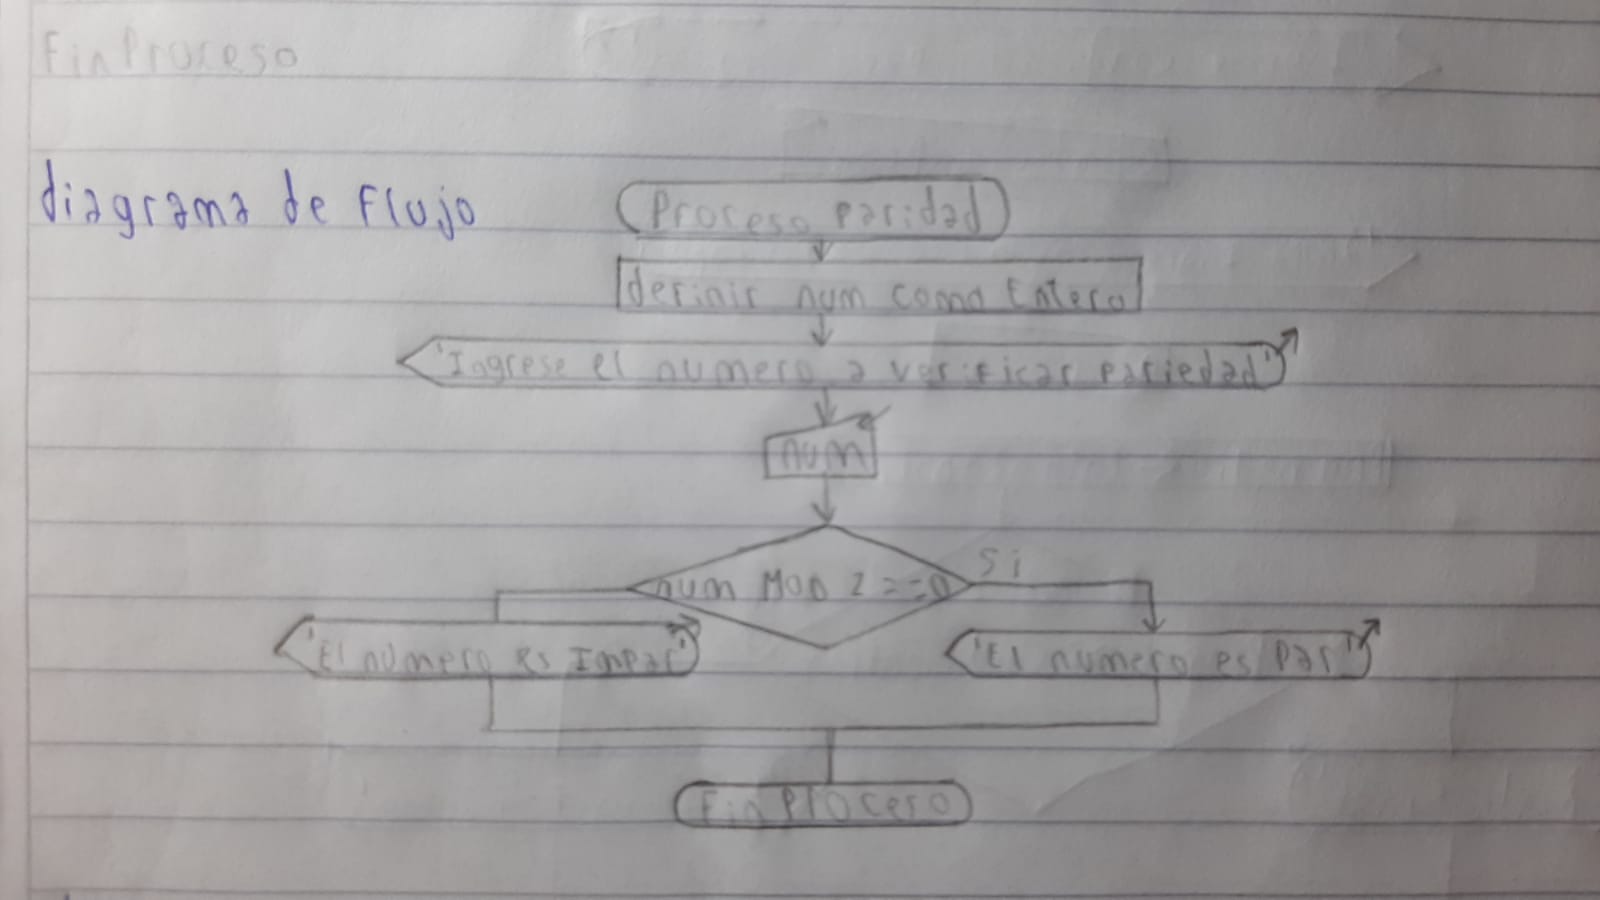 FinProceso
diagrama de Flujo
Proceso paridad
definir num como Entero
'Ingrese el numero a verificar pariedad'
num
num MOD 2 ==0
Si
'El numero es Impar'
'El numero es Par'
Fin Proceso